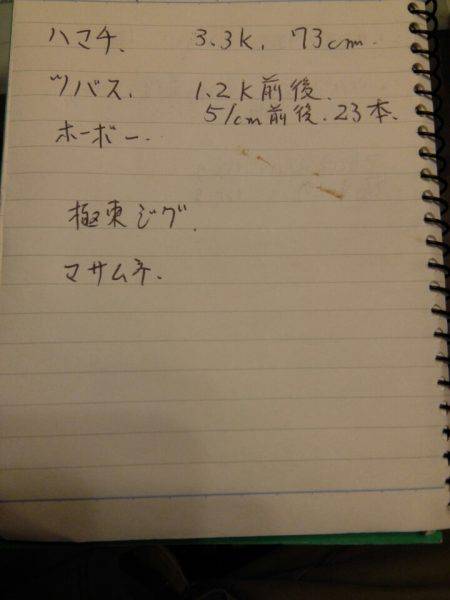 ハマチ. 3.3K. 73cm.
ツバス. 1.2K前後.
51cm前後. 23本.
ホーボー.
極東ジグ.
マサムネ.